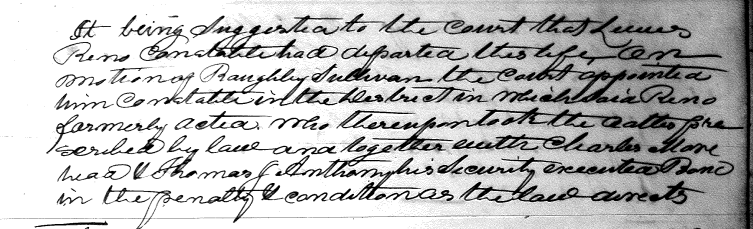 It being Suggested to the court that Lewis
Reno Constable had departed this life, On
motion of Raughley Sullivan the Court appointed
him Constable in the District in which said Reno
formerly acted. Who thereupon took the oaths pre
scribed by law and together with Charles More
head & Thomas J Anthony his Security executed Bond
in the penalty & condition as the law directs